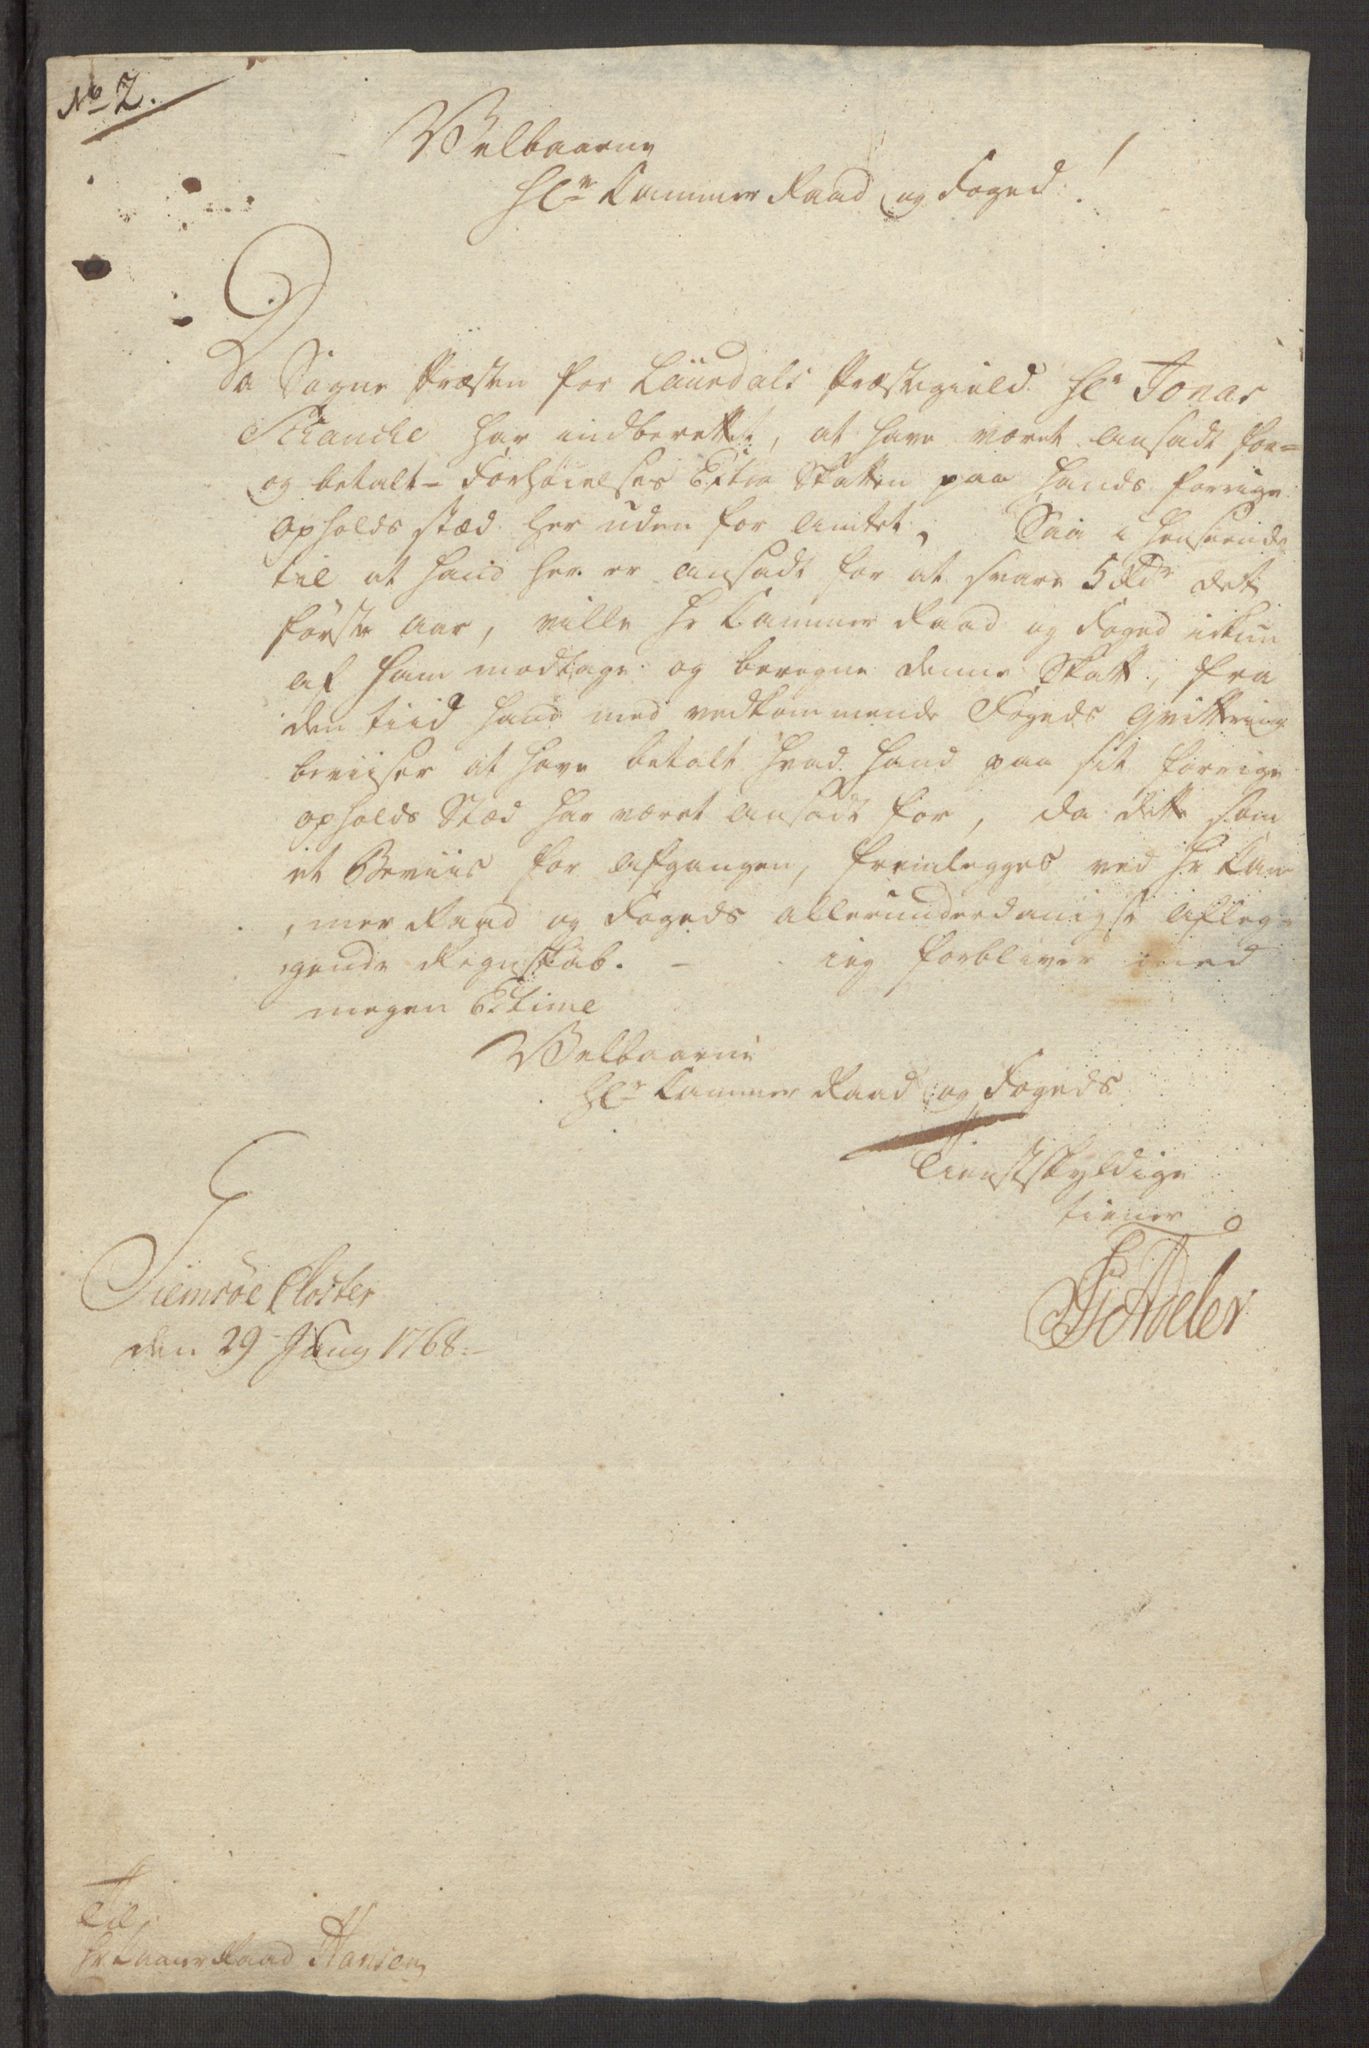 No 2.
Velbaarne
Hr. Cammer Raad og Foged!
Da Sogne Præsten for Laurdals Præstegield Hr. Jonas
Schanche har indberettet, at have været ansadt for-
og betalt- Forhøielses Extra Skatten paa hands forrige
opholds stæd her uden for Amtet, Saa i henseende
til at hand her er ansadt for at svare 5 Rdr det
første aar, ville Hr Cammer Raad og Foged ickun
af ham modtage og beregne denne Skatt, fra
den tiid hand med vedkommende Fogeds Qvittering
beviiser at have betalt hvad hand paa sit forrige
opholds Stæd har været ansadt for, da dette som
et Beviis for Afgangen, fremlegges ved Hr Cam
mer Raad og Fogeds allerunderdanigst afleg-
gende Regnskab. - ieg forbliver med
megen Estime
Velbaarne
Hr. Cammer Raad og Fogeds
Tienstskyldige
tiener
Adeler
Giemsøe Closter
den 29 Aug 1768.
Til
Hr Cammer Raad Hansen